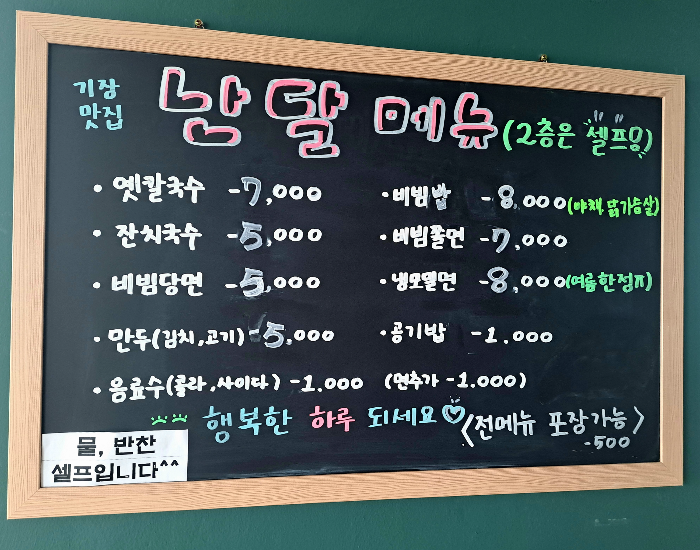 기장
맛집
난달 메뉴 (2층은 셀프요)
• 옛칼국수 -7,000
• 잔치국수 -5,000
• 비빔당면 -5,000
• 만두(김치,고기) -5,000
• 음료수(콜라,사이다) -1.000 (면추가 -1.000)
• 비빔밥 -8,000(야채,닭가슴살)
• 비빔쫄면 -7,000
• 냉모밀면 -8,000(여름한정π)
• 공기밥 -1.000
행복한 하루 되세요♡
<전메뉴 포장가능>
-500
물, 반찬
셀프입니다^^